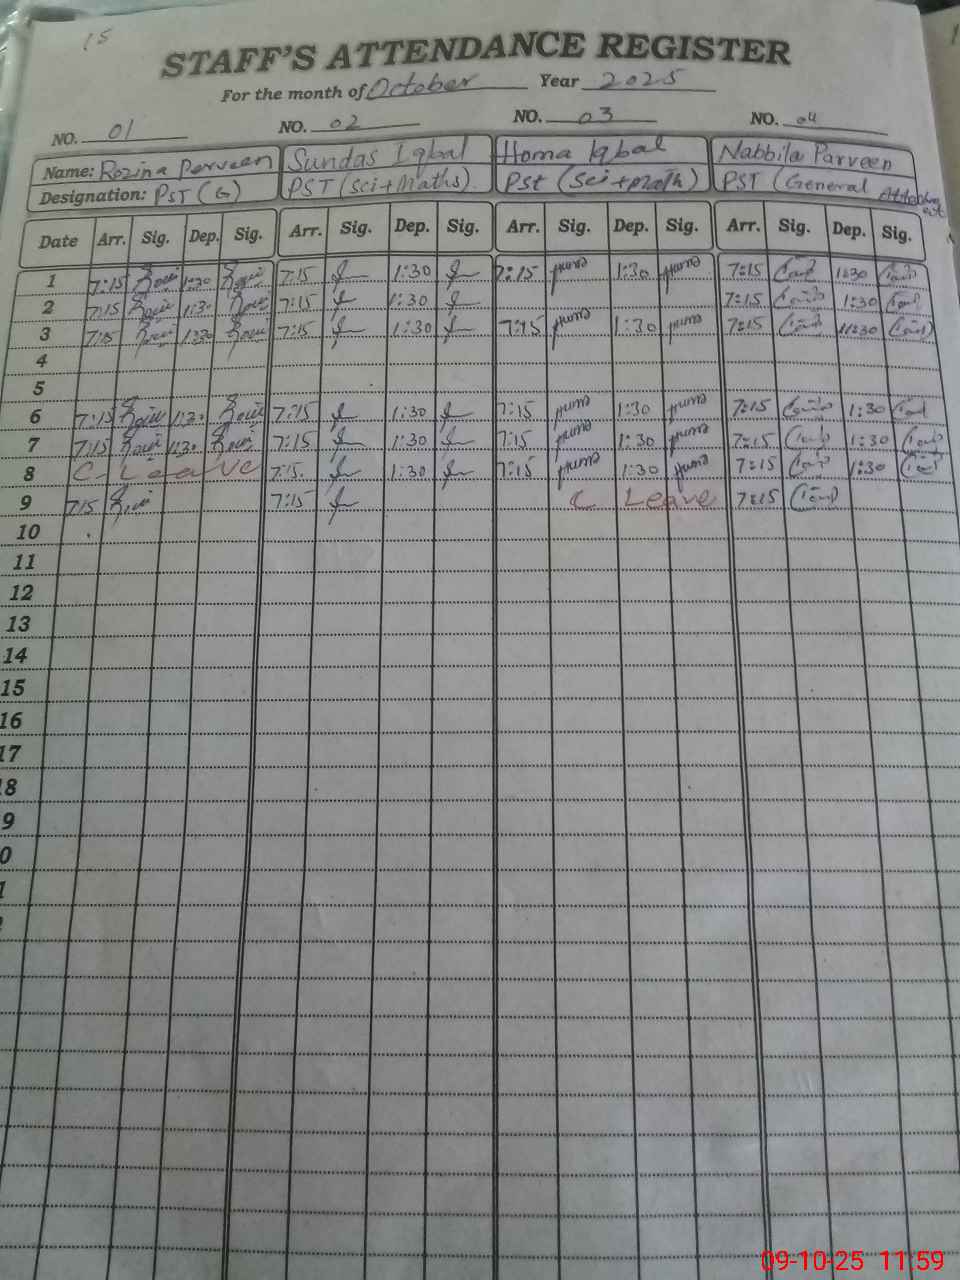 15
STAFF'S ATTENDANCE REGISTER
For the month of October Year 2025
NO. 01 NO. 02 NO. 03 NO. 04
Name: Rozina Perveen Sundas Iqbal Homa Iqbal Nabbila Parveen
Designation: PST (G) PST (Sci+Maths). Pst (Sci+Math) PST (General
Date Arr. Sig. Dep. Sig. Arr. Sig. Dep. Sig. Arr. Sig. Dep. Sig. Arr. Sig. Dep. Sig.
1 7:15 1:30 7:15 1:30 7:15 1:30 7:15 1:30
2 7:15 1:30 7:15 1:30 7:15 1:30
3 7:15 1:30 7:15 1:30 7:15 1:30 7:15 11:30
4
5
6 7:15 1:30 7:15 1:30 7:15 1:30 7:15 1:30
7 7:15 1:30 7:15 1:30 7:15 1:30 7:15 1:30
8 C. Leave 7:15 1:30 7:15 1:30 7:15 1:30
9 7:15 7:15 C Leave 7:15
10
11
12
13
14
15
16
17
8
9
0
09-10-25 11:59